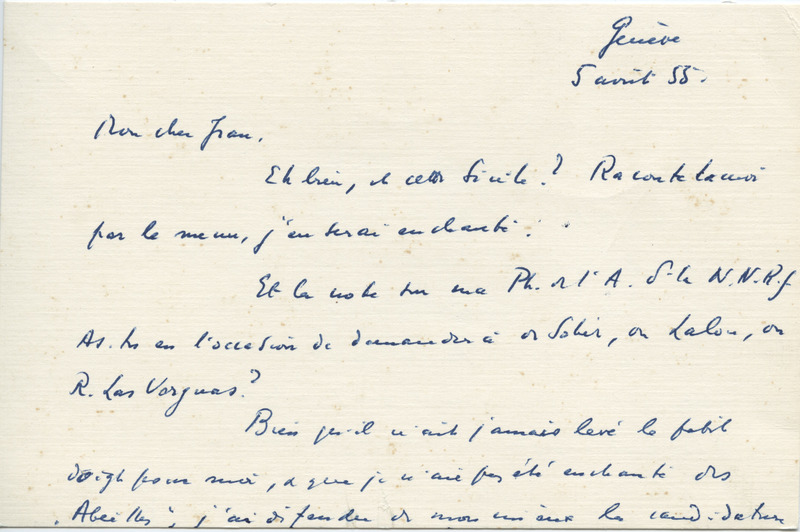 Genève
5 avril 55.
Mon cher Jean,
Eh bien, et cette Sicile? Raconte la moi
par le menu, j'en serai enchanté!
Et la note sur ma Ph. de l'A. ds la N.N.R.f
As-tu eu l'occasion de demander à de Solier, ou Lalou, ou
R. Las Vergnas?
Bien qu'il n'ait jamais levé le petit
doigt pour moi, et que je n'aie pas été enchanté des
"Abeilles", j'ai défendu de mon mieux la candidature